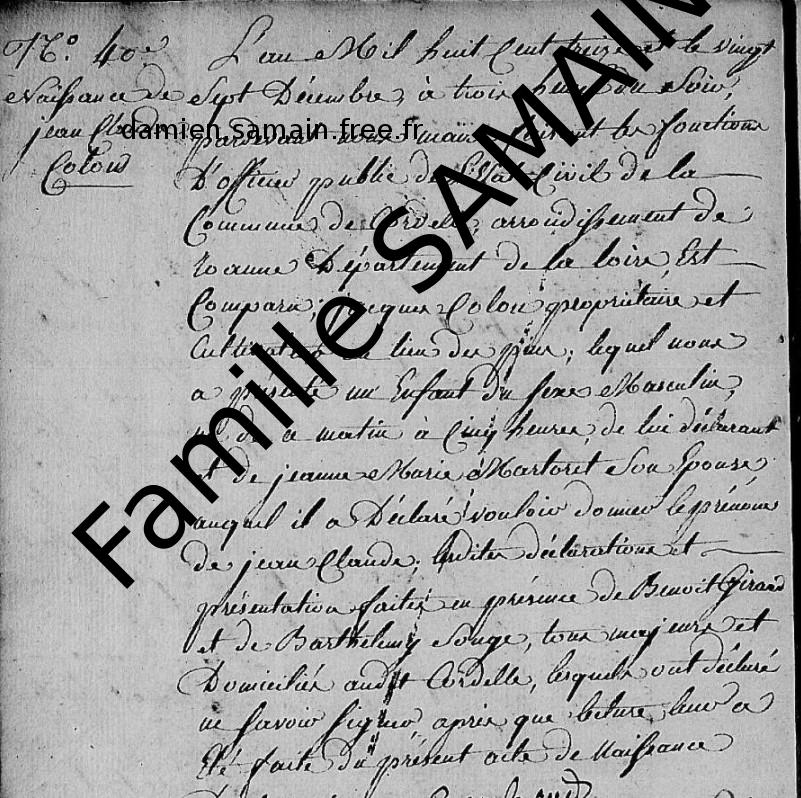 N.° 40.e
Naissance de
jean Claude
Colon
L'an Mil huit Cent treize et le vingt
Sept Décembre, à trois heures du Soir,
pardevant nous maire faisant les fonctions
D'officier public de L'Etat Civil de la
Commune de Cordelle, arrondissement de
roanne Département de la loire, Est
Comparu, jacques Colon propriétaire et
Cultivateur lieu des ; lequel nous
a présenté un Enfant du sexe Masculin,
né a matin à Cinq heures, de lui déclarant
et de jeanne Marie Martoret Son Epouse
auquel il a Déclaré vouloir donner le prénom
de jean Claude ; lesdites déclarations et
présentation faites en présence de Benoit Girard
et de Barthelemy Songe, tous majeurs et
Domiciliés audit Cordelle, lesquels ont déclaré
ne savoir signer après que lecture leur a
Eté faite du présent acte de Naissance
damien.samain.free.fr
Famille SAMAIN